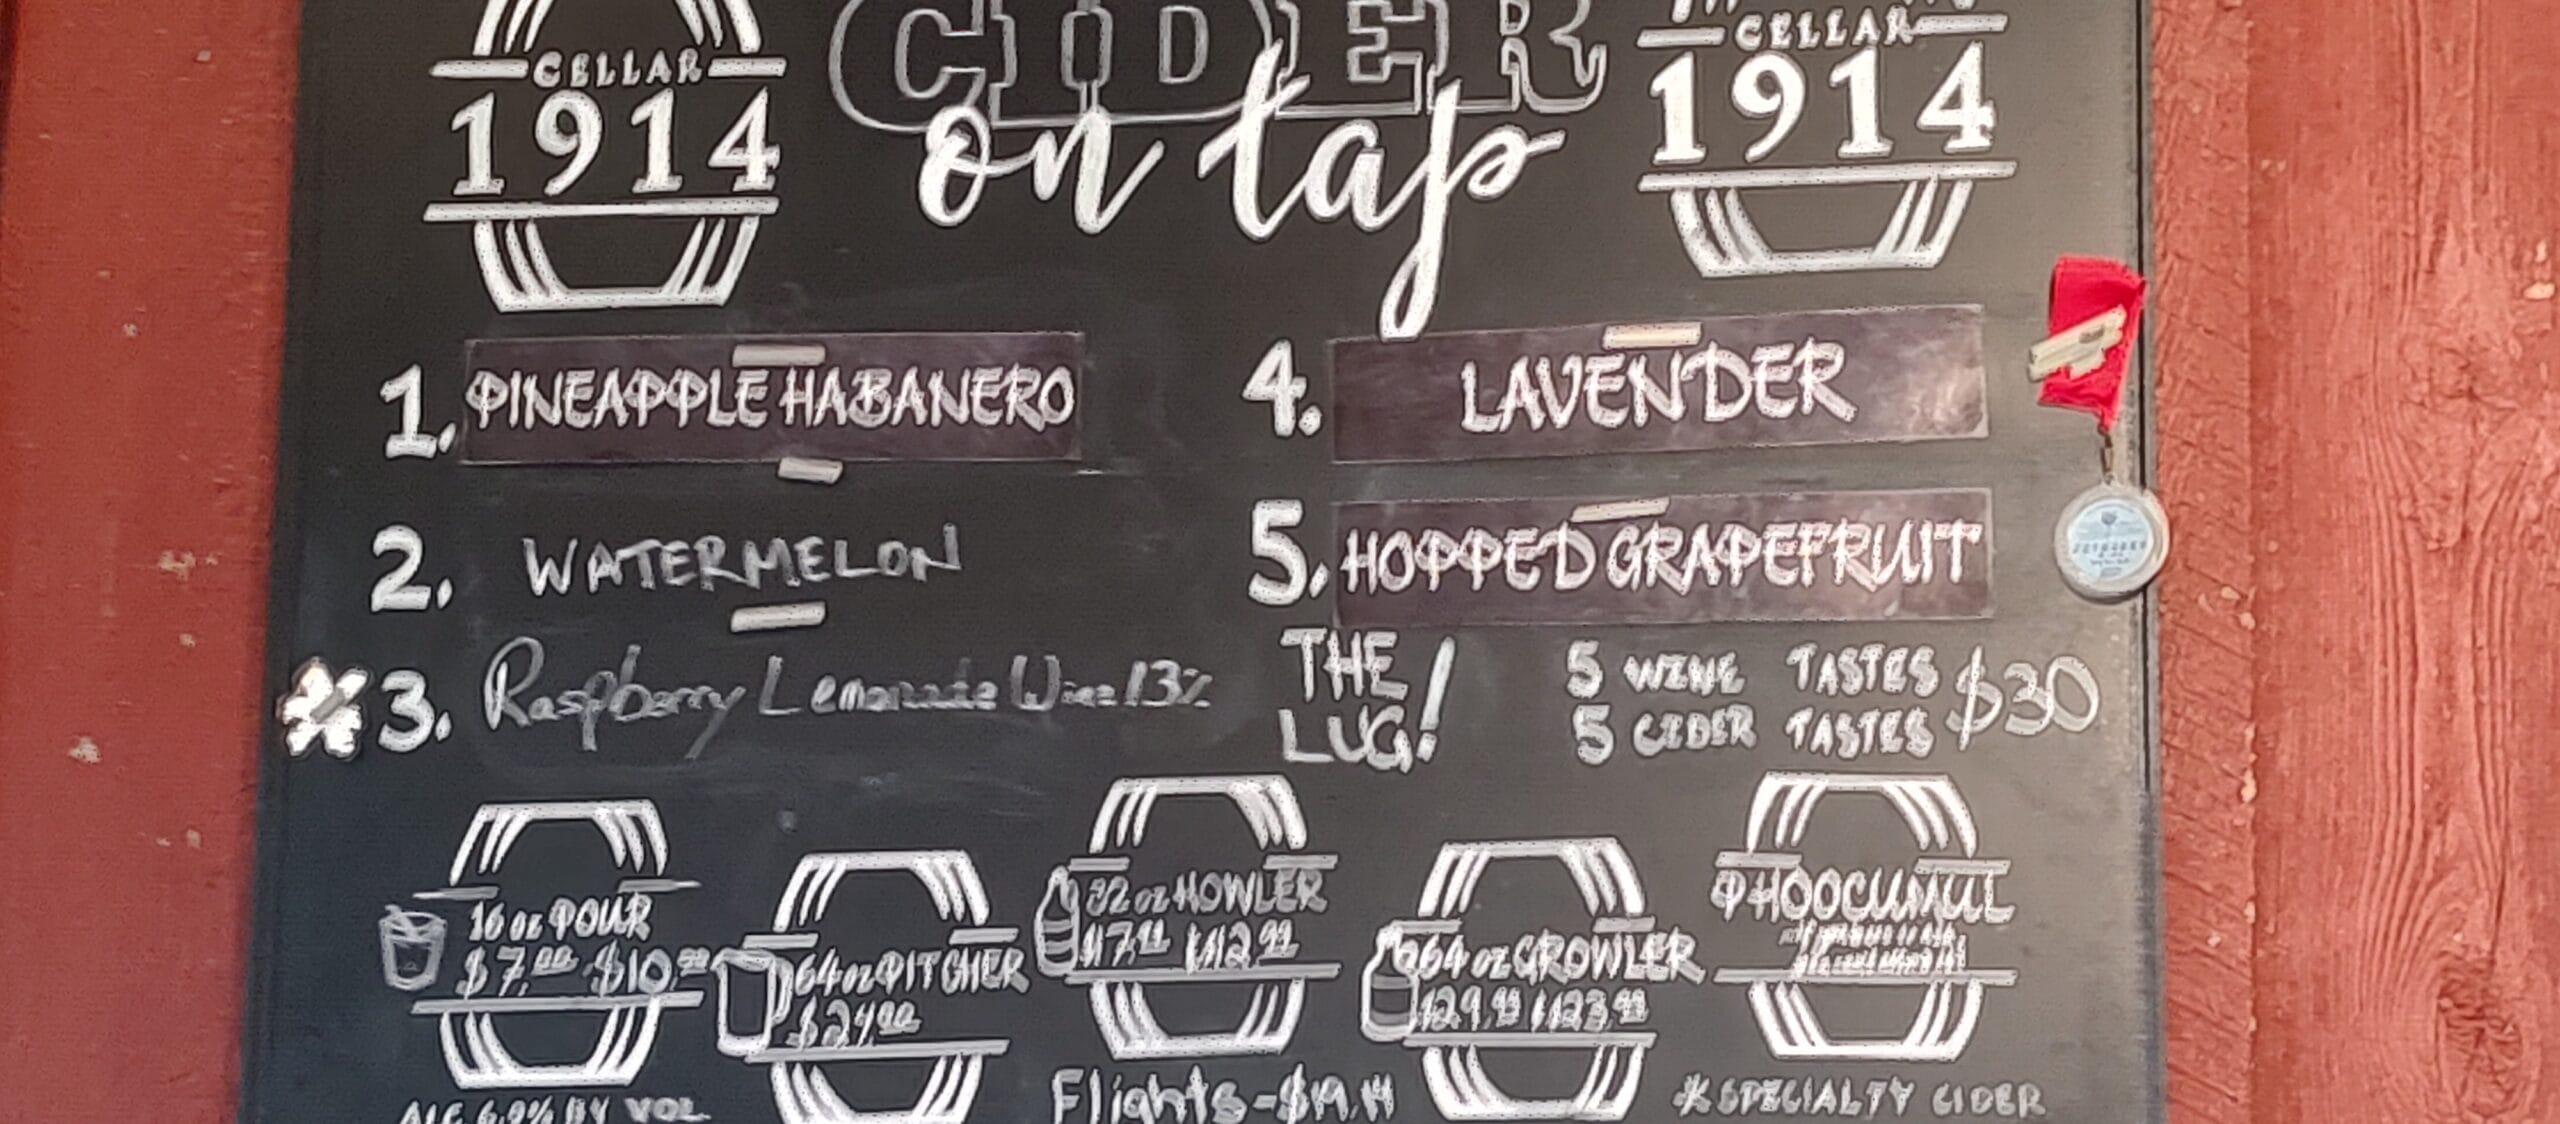 CIDER
on tap
CELLAR
1914
CELLAR
1914
1. PINEAPPLE HABANERO
2. WATERMELON
*3. Raspberry Lemonade Wine 13%
4. LAVENDER
5. HOPPED GRAPEFRUIT
THE LUG!
5 WINE TASTES
5 CIDER TASTES
$30
16 oz POUR
$7.00 $10.00
64 oz PITCHER
$24.00
32 oz HOWLER
64 oz GROWLER
Flights-
*SPECIALTY CIDER
ALC 6.9% BY VOL